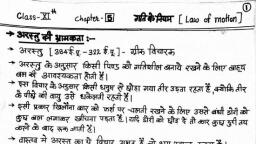 Class-XIth Chapter-5 गति के नियम [Law of motion]
①
→ अरस्तु की भ्रामकता :-
→ अरस्तु [384 ई.पू. - 322 ई.पू.] - ग्रीक विचारक
→ अरस्तु के अनुसार किसी पिण्ड को गतिशील बनाये रखने के लिए बाह्य
बल की आवश्यकता होती है।
→ इस विचार के अनुसार किसी धनुष से छोड़ा गया तीर उड़ता रहता है, क्योंकि तीर
के पीछे की वायु उसे धकेलती रहती है।
→ इसी प्रकार खिलौना कार को फर्श पर चलाती रखने के लिए उससे बंधी डोरी को
कुछ बल लगाकर खींचना पड़ता है। यदि डोरी को छोड़ दे तो कार कुछ दूरी तय
करने के बाद रुक जाती है।
→ वास्तव में अरस्तु का